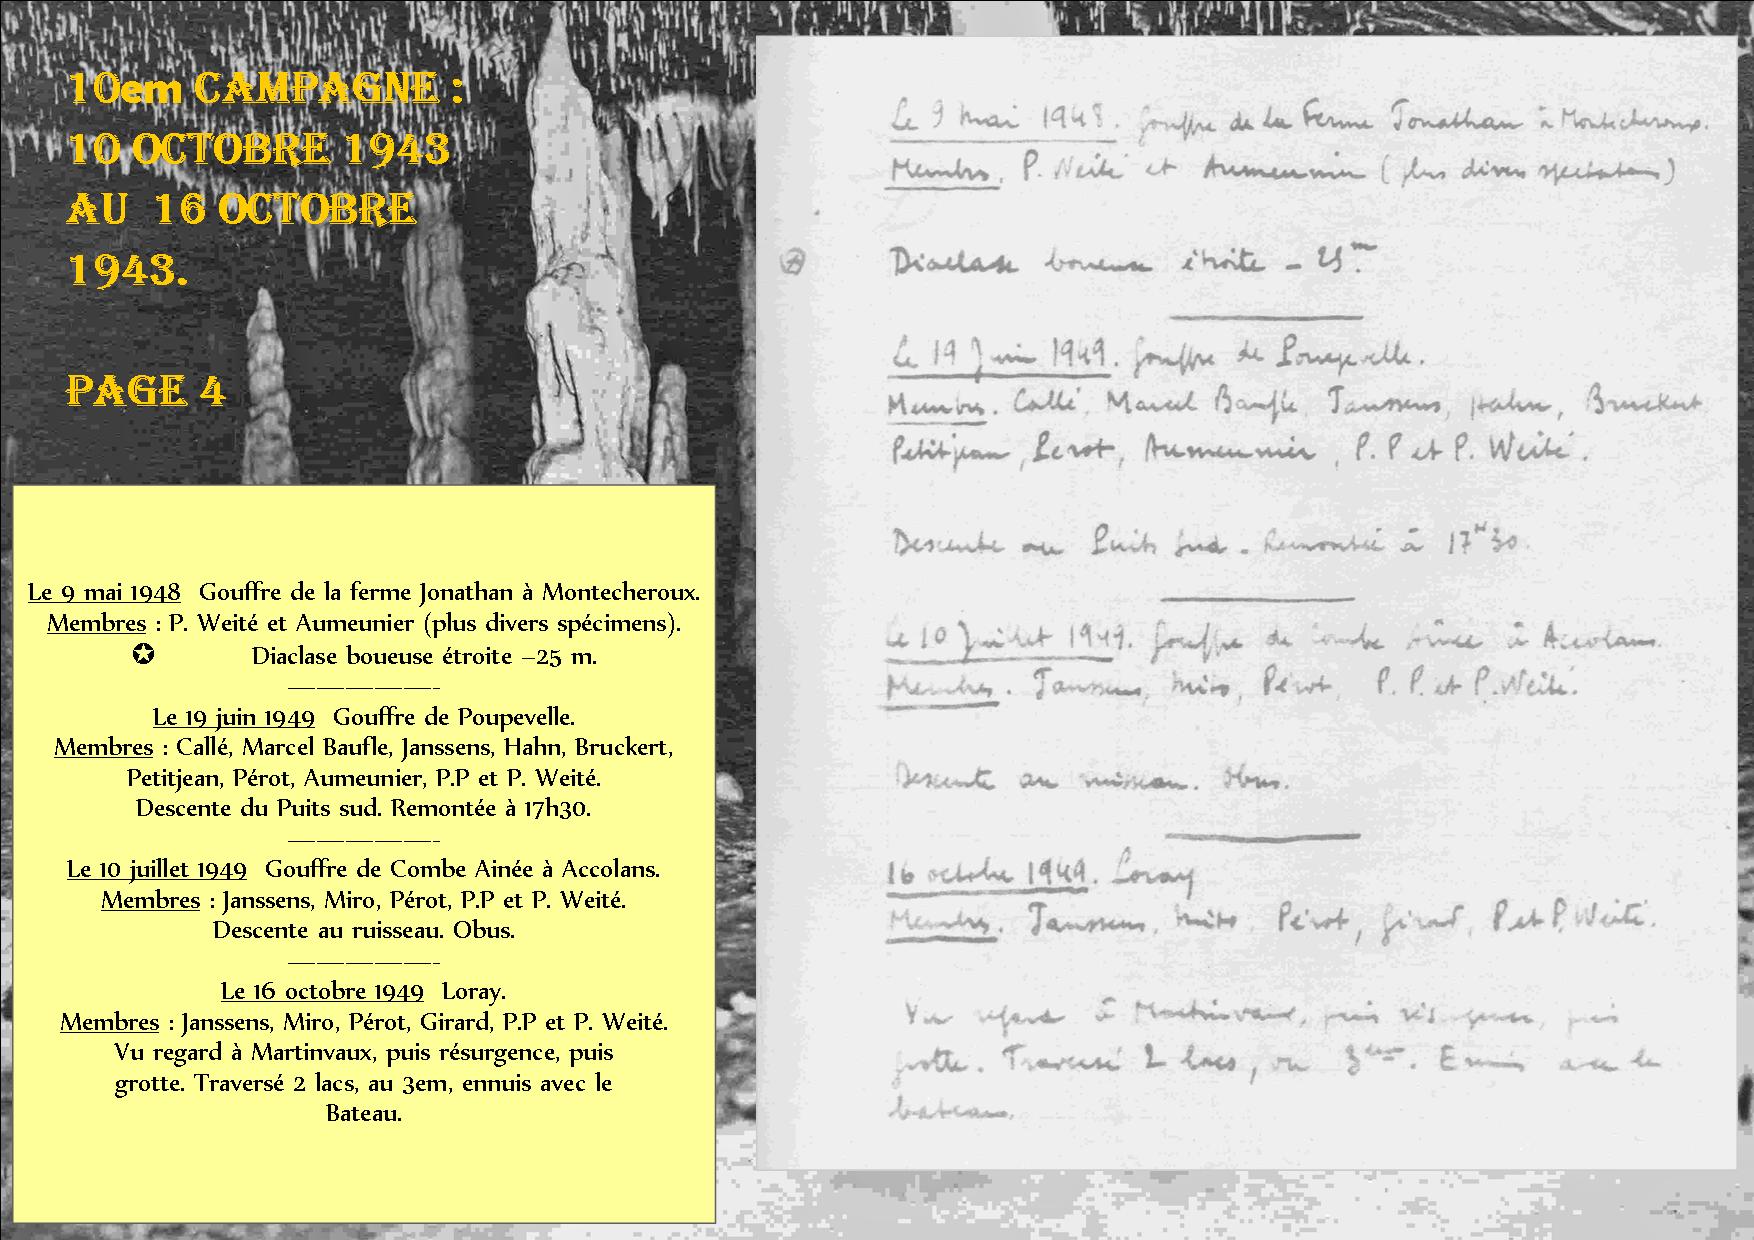 10em CAMPAGNE :
10 OCTOBRE 1943
AU 16 OCTOBRE
1943.
PAGE 4
Le 9 mai 1948 Gouffre de la ferme Jonathan à Montecheroux.
Membres : P. Weité et Aumeunier (plus divers spécimens).
✪ Diaclase boueuse étroite –25 m.
Le 19 juin 1949 Gouffre de Poupevelle.
Membres : Callé, Marcel Baufle, Janssens, Hahn, Bruckert,
Petitjean, Pérot, Aumeunier, P.P et P. Weité.
Descente du Puits sud. Remontée à 17h30.
Le 10 juillet 1949 Gouffre de Combe Ainée à Accolans.
Membres : Janssens, Miro, Pérot, P.P et P. Weité.
Descente au ruisseau. Obus.
Le 16 octobre 1949 Loray.
Membres : Janssens, Miro, Pérot, Girard, P.P et P. Weité.
Vu regard à Martinvaux, puis résurgence, puis
grotte. Traversé 2 lacs, au 3em, ennuis avec le
Bateau.
Le 9 mai 1948. Gouffre de la Ferme Jonathan à Montecheroux.
Membres. P. Weité et Aumeunier (plus divers spectateurs)
Diaclase boueuse étroite – 25m.
Le 19 Juin 1949. Gouffre de Poupevelle.
Membres. Callé, Marcel Baufle, Janssens, Hahn, Bruckert
Petitjean, Perot, Aumeunier, P. P et P. Weité.
Descente au Puits Sud. Remontée à 17H30.
Le 10 Juillet 1949. Gouffre de Combe à Accolans.
Membres. Janssens, Miro, Pérot, P. P. et P. Weité.
Descente au ruisseau. Obus.
16 octobre 1949. Loray
Membres. Janssens, Miro, Pérot, Girard, P et P. Weité.
Vu regard à Martinvaux, puis résurgence, puis
grotte. Traversé 2 lacs, vu 3ème. Ennuis avec le
bateau.